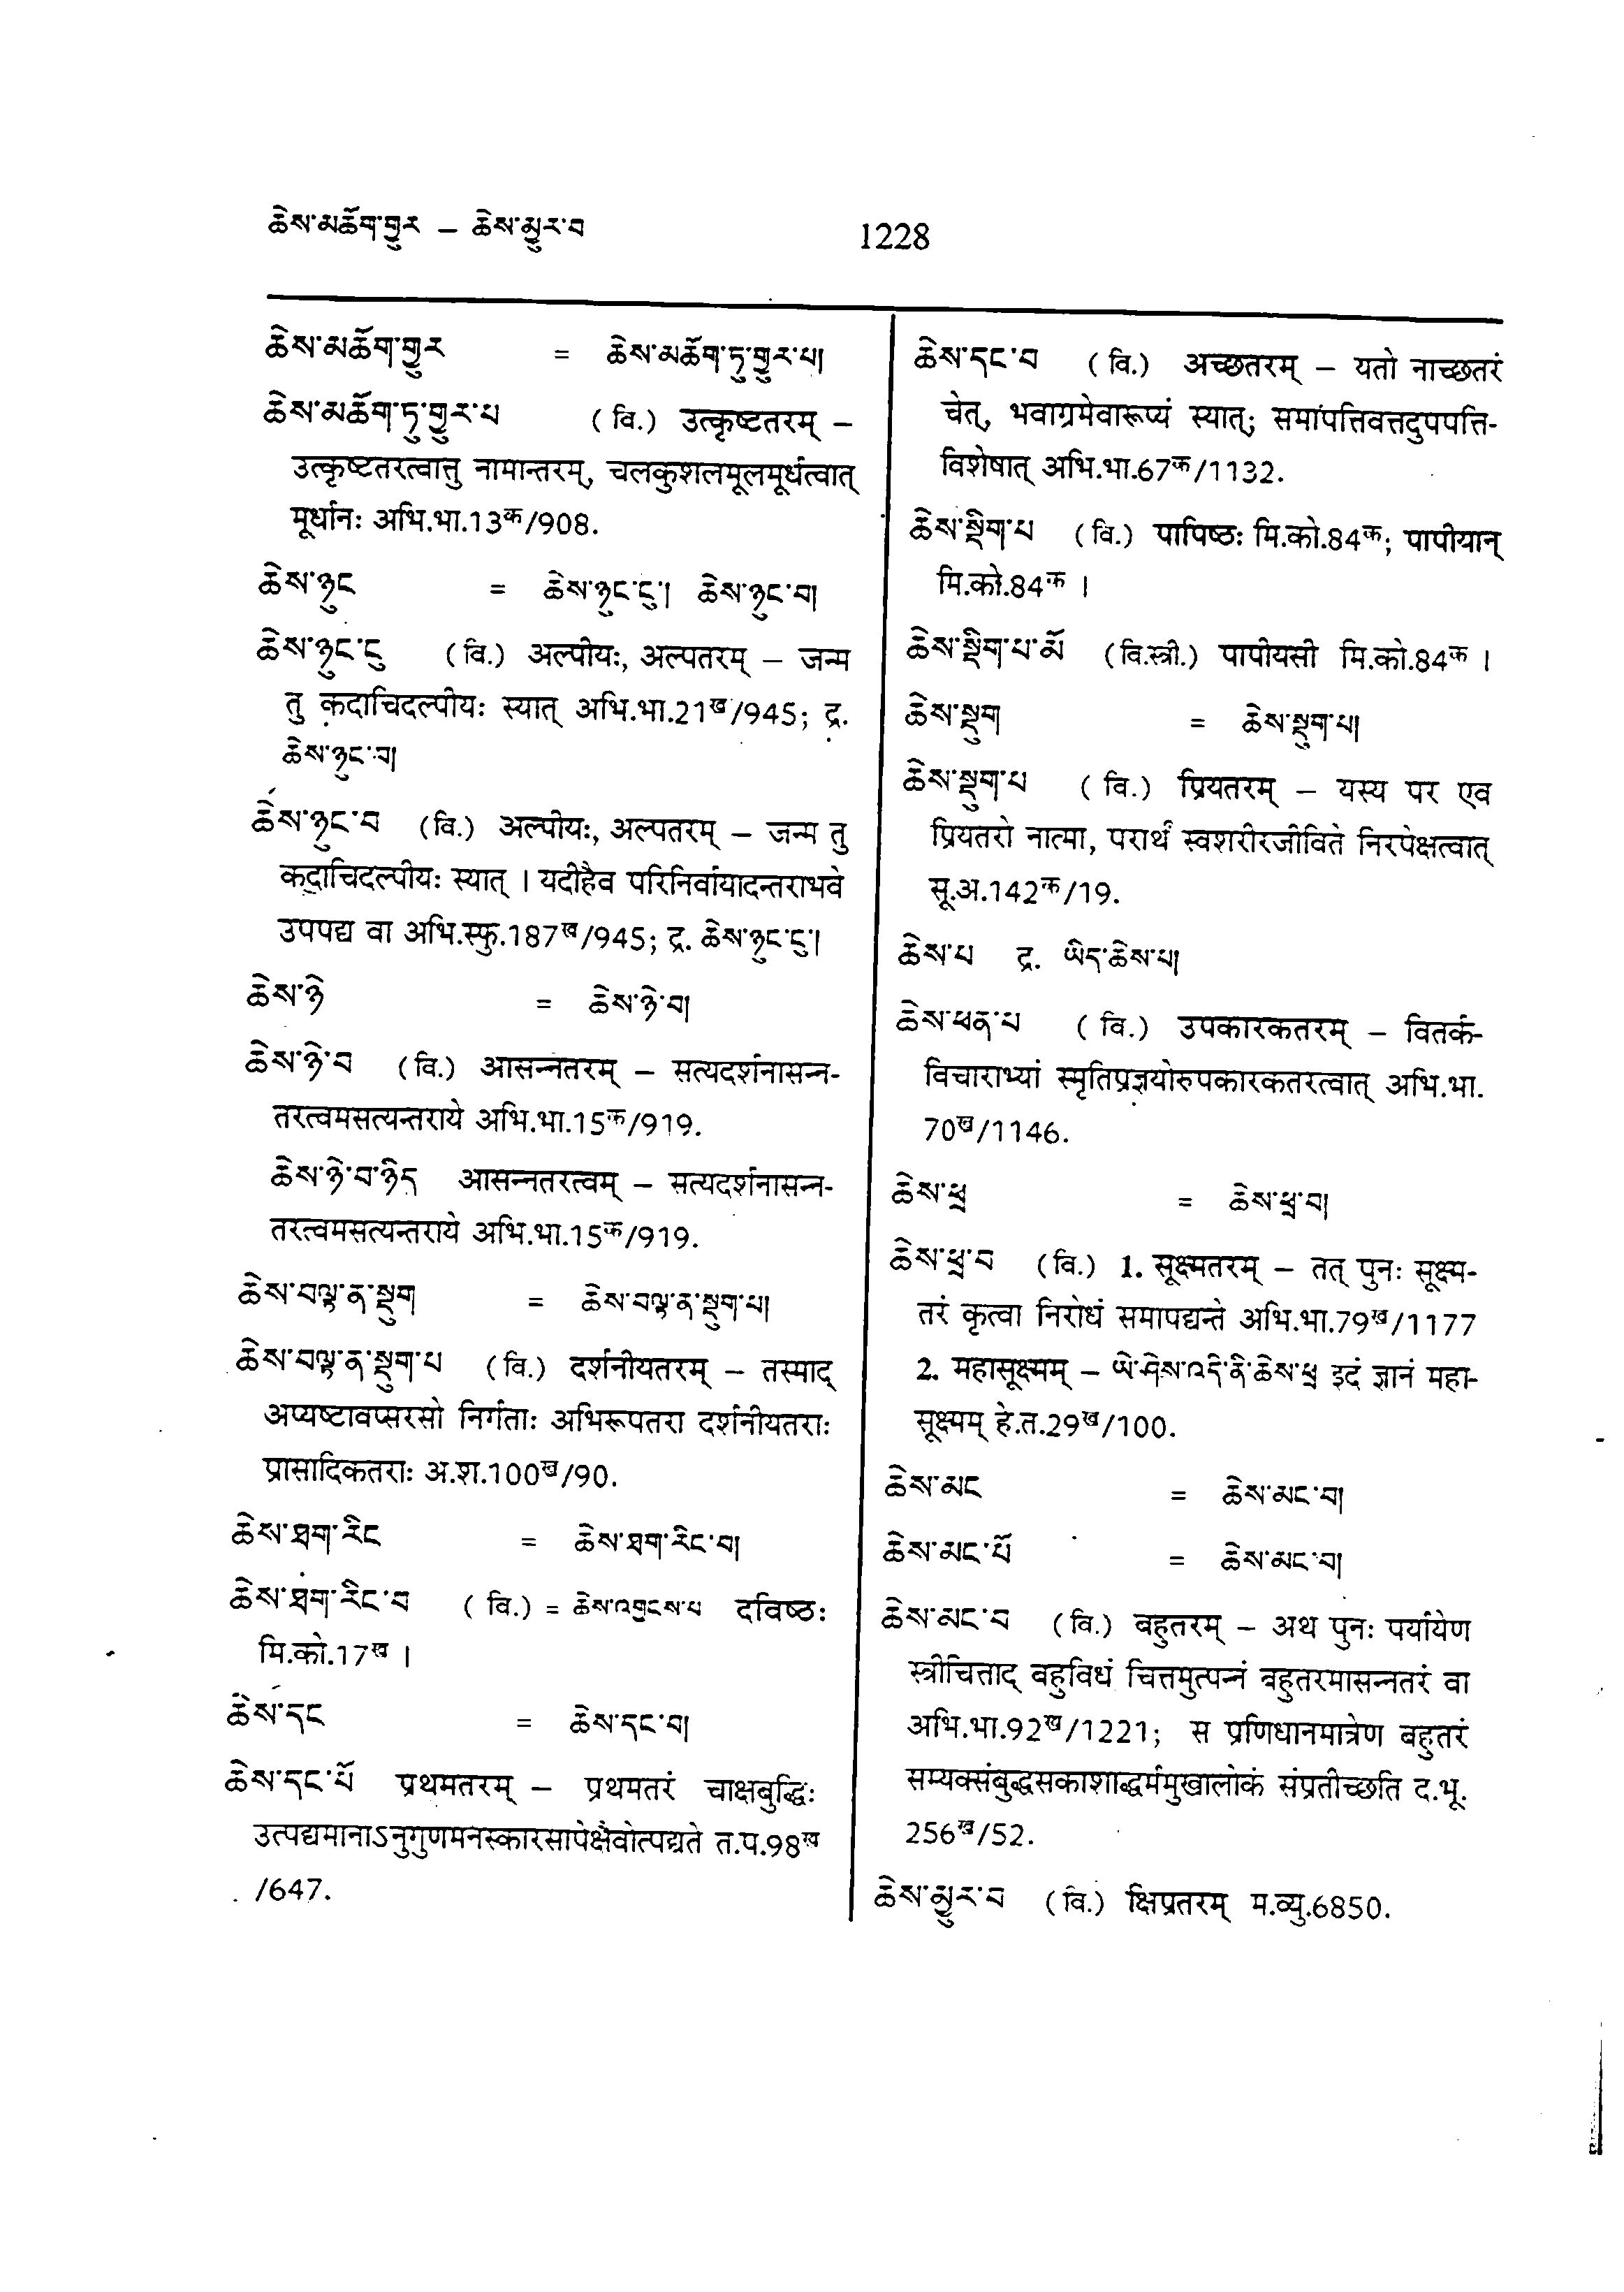 ཆེས་མཆོག་གྱུར – ཆེས་མྱུར་བ
1228
ཆེས་མཆོག་གྱུར = ཆེས་མཆོག་ཏུ་གྱུར་པ།
ཆེས་མཆོག་ཏུ་གྱུར་པ (वि.) उत्कृष्टतरम् –
उत्कृष्टतरत्वात्तु नामान्तरम्, चलकुशलमूलमूर्धत्वात्
मूर्धानः अभि.भा.13क/908.
ཆེས་ཉུང = ཆེས་ཉུང་ངུ། ཆེས་ཉུང་བ།
ཆེས་ཉུང་ངུ (वि.) अल्पीयः, अल्पतरम् – जन्म
तु कदाचिदल्पीयः स्यात् अभि.भा.21ख/945; द्र.
ཆེས་ཉུང་བ།
ཆེས་ཉུང་བ (वि.) अल्पीयः, अल्पतरम् – जन्म तु
कदाचिदल्पीयः स्यात् । यदीहैव परिनिर्वायादन्तराभवे
उपपद्य वा अभि.स्फु.187ख/945; द्र. ཆེས་ཉུང་ངུ།
ཆེས་ཉེ = ཆེས་ཉེ་བ།
ཆེས་ཉེ་བ (वि.) आसन्नतरम् – सत्यदर्शनासन्न-
तरत्वमसत्यन्तराये अभि.भा.15क/919.
ཆེས་ཉེ་བ་ཉིད आसन्नतरत्वम् – सत्यदर्शनासन्न-
तरत्वमसत्यन्तराये अभि.भा.15क/919.
ཆེས་བལྟ་ན་སྡུག = ཆེས་བལྟ་ན་སྡུག་པ།
ཆེས་བལྟ་ན་སྡུག་པ (वि.) दर्शनीयतरम् – तस्माद्
अप्यष्टावप्सरसो निर्गताः अभिरूपतरा दर्शनीयतराः
प्रासादिकतराः अ.श.100ख/90.
ཆེས་ཐག་རིང = ཆེས་ཐག་རིང་བ།
ཆེས་ཐག་རིང་བ (वि.) = ཆེས་འགྱངས་པ दविष्ठः
मि.को.17ख ।
ཆེས་དང = ཆེས་དང་བ།
ཆེས་དང་པོ प्रथमतरम् – प्रथमतरं चाक्षबुद्धिः
उत्पद्यमानाऽनुगुणमनस्कारसापेक्षैवोत्पद्यते त.प.98ख
/647.
ཆེས་དང་བ (वि.) अच्छतरम् – यतो नाच्छतरं
चेत्, भवाग्रमेवारूप्यं स्यात्; समापत्तिवत्तदुपपत्ति-
विशेषात् अभि.भा.67क/1132.
ཆེས་སྡིག་པ (वि.) पापिष्ठः मि.को.84क; पापीयान्
मि.को.84क ।
ཆེས་སྡིག་པ་མོ (वि.स्त्री.) पापीयसी मि.को.84क ।
ཆེས་སྡུག = ཆེས་སྡུག་པ།
ཆེས་སྡུག་པ (वि.) प्रियतरम् – यस्य पर एव
प्रियतरो नात्मा, परार्थं स्वशरीरजीविते निरपेक्षत्वात्
सू.अ.142क/19.
ཆེས་པ द्र. ཡིད་ཆེས་པ།
ཆེས་ཕན་པ (वि.) उपकारकतरम् – वितर्क-
विचाराभ्यां स्मृतिप्रज्ञयोरुपकारकतरत्वात् अभि.भा.
70ख/1146.
ཆེས་ཕྲ = ཆེས་ཕྲ་བ།
ཆེས་ཕྲ་བ (वि.) 1. सूक्ष्मतरम् – तत् पुनः सूक्ष्म-
तरं कृत्वा निरोधं समापद्यन्ते अभि.भा.79ख/1177
2. महासूक्ष्मम् – ཡེ་ཤེས་འདི་ནི་ཆེས་ཕྲ इदं ज्ञानं महा-
सूक्ष्मम् हे.त.29ख/100.
ཆེས་མང = ཆེས་མང་བ།
ཆེས་མང་པོ = ཆེས་མང་བ།
ཆེས་མང་བ (वि.) बहुतरम् – अथ पुनः पर्यायेण
स्त्रीचित्ताद् बहुविधं चित्तमुत्पन्नं बहुतरमासन्नतरं वा
अभि.भा.92ख/1221; स प्रणिधानमात्रेण बहुतरं
सम्यक्संबुद्धसकाशाद्धर्ममुखालोकं संप्रतीच्छति द.भू.
256ख/52.
ཆེས་མྱུར་བ (वि.) क्षिप्रतरम् म.व्यु.6850.